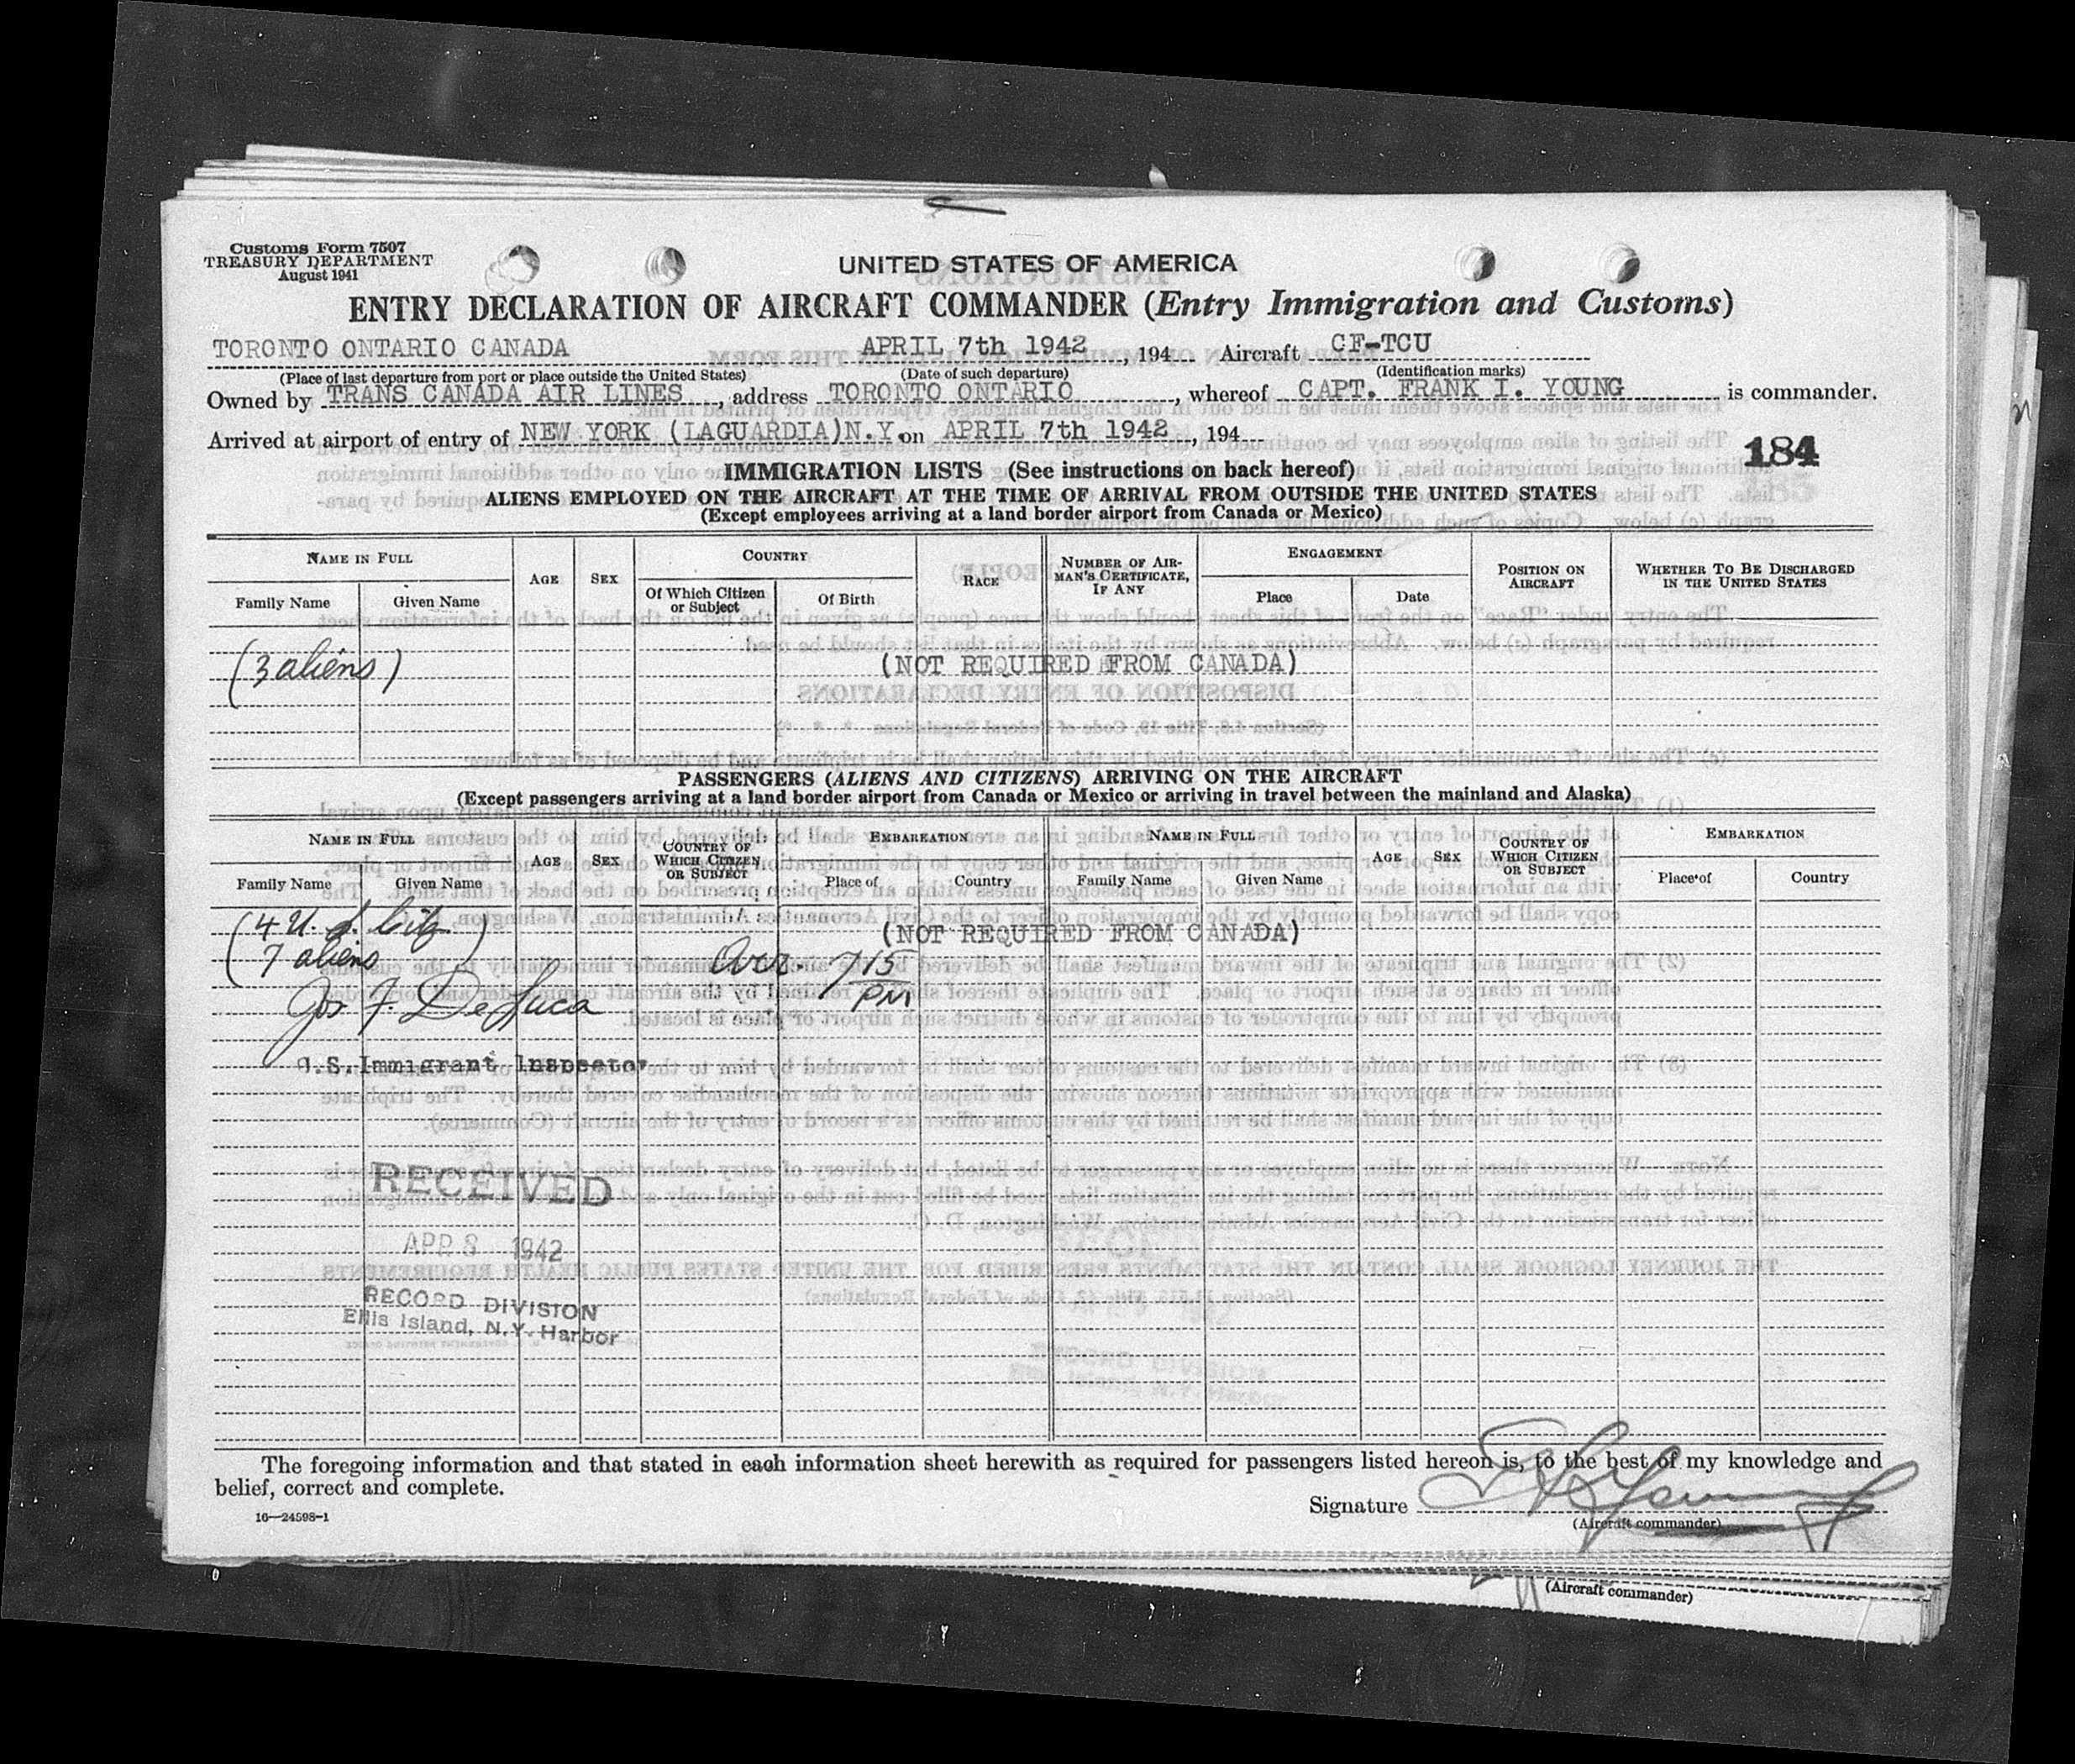 Customs Form 7507
TREASURY DEPARTMENT
August 1941
UNITED STATES OF AMERICA
ENTRY DECLARATION OF AIRCRAFT COMMANDER (Entry Immigration and Customs)
TORONTO ONTARIO CANADA APRIL 7th 1942, 194 Aircraft CF-TCU
(Place of last departure from port or place outside the United States) (Date of such departure) (Identification marks)
Owned by TRANS CANADA AIR LINES, address TORONTO ONTARIO, whereof CAPT. FRANK I. YOUNG is commander.
Arrived at airport of entry of NEW YORK (LAGUARDIA)N.Y. on APRIL 7th 1942, 194
184
IMMIGRATION LISTS (See instructions on back hereof)
ALIENS EMPLOYED ON THE AIRCRAFT AT THE TIME OF ARRIVAL FROM OUTSIDE THE UNITED STATES
(Except employees arriving at a land border airport from Canada or Mexico)
NAME IN FULL AGE SEX COUNTRY RACE NUMBER OF AIRMAN'S CERTIFICATE, IF ANY ENGAGEMENT POSITION ON AIRCRAFT WHETHER TO BE DISCHARGED IN THE UNITED STATES
Family Name Given Name Of Which Citizen or Subject Of Birth Place Date
(3 aliens) (NOT REQUIRED FROM CANADA)
PASSENGERS (ALIENS AND CITIZENS) ARRIVING ON THE AIRCRAFT
(Except passengers arriving at a land border airport from Canada or Mexico or arriving in travel between the mainland and Alaska)
NAME IN FULL AGE SEX COUNTRY OF WHICH CITIZEN OR SUBJECT EMBARKATION NAME IN FULL AGE SEX COUNTRY OF WHICH CITIZEN OR SUBJECT EMBARKATION
Family Name Given Name Place of Country Family Name Given Name Place of Country
(4 U. S. Citz
7 aliens)
(NOT REQUIRED FROM CANADA)
Arr. 7 15 PM
Jos F. DeLuca
U.S. Immigrant Inspector
RECEIVED
APR 8 1942
RECORD DIVISION
Ellis Island, N.Y. Harbor
The foregoing information and that stated in each information sheet herewith as required for passengers listed hereon is, to the best of my knowledge and
belief, correct and complete.
Signature
(Aircraft commander)
16—24598-1
(Aircraft commander)